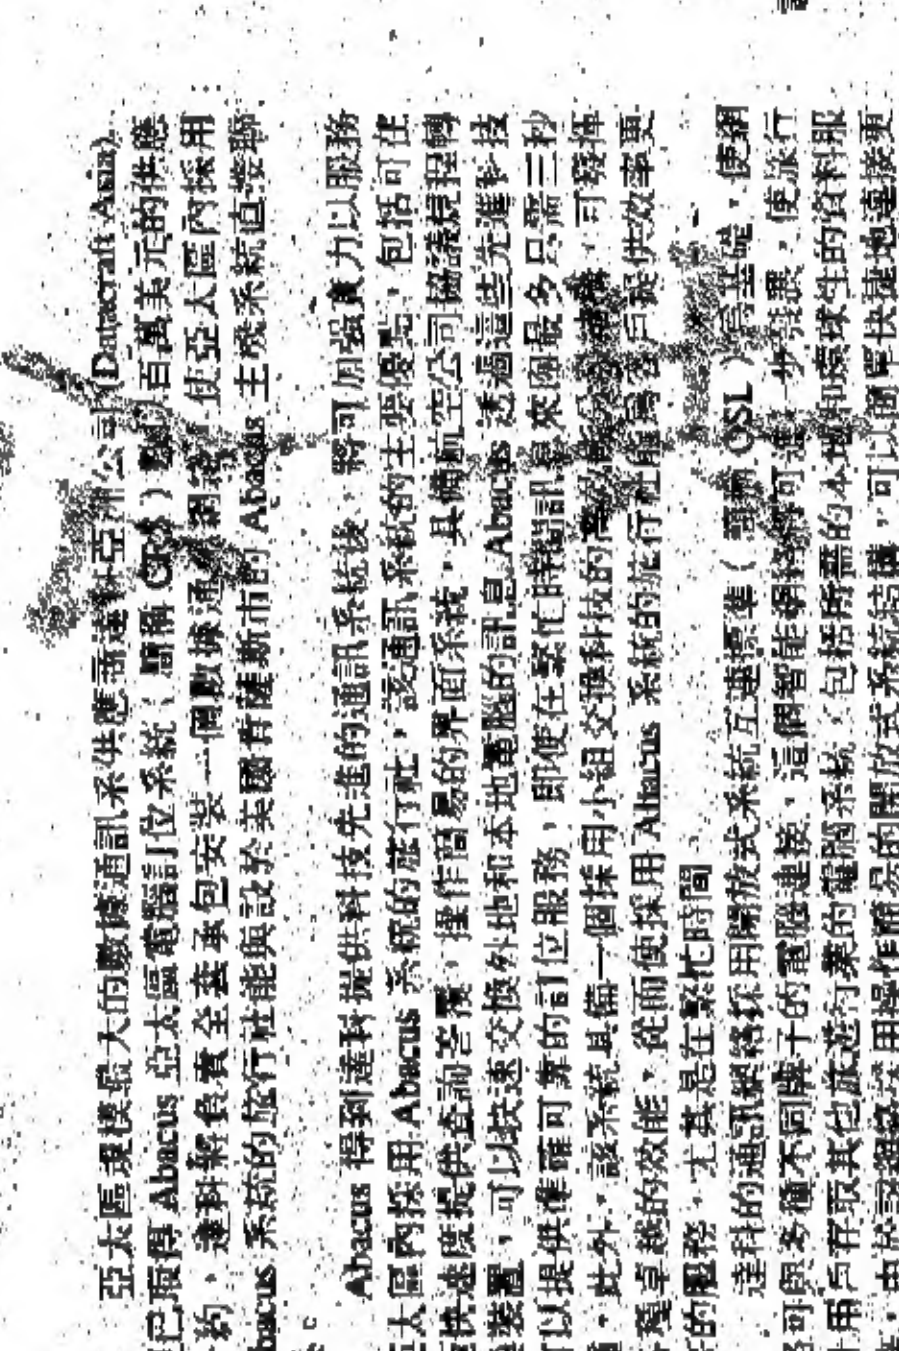 亞太區規模最大的數據通訊系供應商達科亞洲公司(Datacraft Asia)
已取得 Abacus 亞太區電腦訂位系統(簡稱 CRS) 百萬美元的供應
約,達科將負責全套承包安裝一個數據通 網絡 使亞太區內採用
bacus 系統的旅行社能與設於美國肯薩斯市的 Abacus 主機系統直接聯
。
Abacus 得到達科提供科技先進的通訊系統後,將可加強實力以服務
亞太區內採用 Abacus 系統的旅行社,該通訊系統的主要優點,包括可在
快速度提供查詢答覆,操作簡易的界面系統,具備航空公司協議規程轉
換裝置,可以快速交換外地和本地電腦的訊息 Abacus 透過這些先進科技
可以提供準確可靠的訂位服務,即使在繁忙時 訊息來回最多只需三秒
,此外,該系統具備一個採用小組交換科技的 ,可發揮
種卓越的效能,從而使採用 Abacus 系統的旅行社能為客戶提供效率更
的服務,尤其是在繁忙時間
達科的通訊網絡採用開放式系統互連標準( OSL)為基礎,使網
可與多種不同牌子的電腦連接,這個智能網絡將可進一步發展,使旅行
用戶存取其他旅遊行業的電腦系統,包括所需的本地和環球性的資料服
由於該網絡採用操作簡易的開放式系統結構,可以簡單快捷地連接更